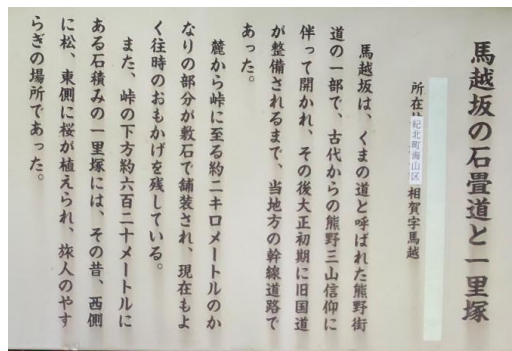 馬越坂の石畳道と一里塚
所在
紀北町海山区
相賀字馬越
馬越坂は、くまの道と呼ばれた熊野街
道の一部で、古代からの熊野三山信仰に
伴って開かれ、その後大正初期に旧国道
が整備されるまで、当地方の幹線道路で
あった。
麓から峠に至る約二キロメートルのか
なりの部分が敷石で舗装され、現在もよ
く往時のおもかげを残している。
また、峠の下方約六百二十メートルに
ある石積みの一里塚には、その昔、西側
に松、東側に桜が植えられ、旅人のやす
らぎの場所であった。